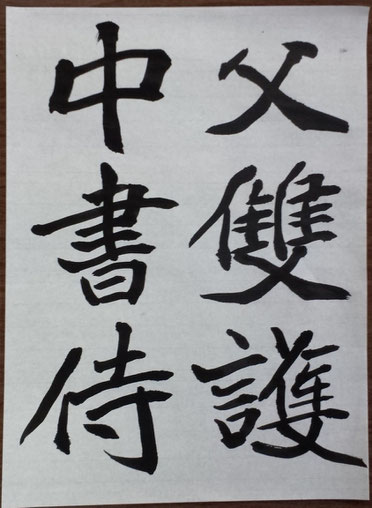 父雙護
中書侍